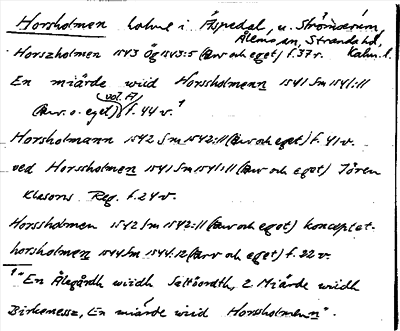 Horsholmen holme i Åspedal, n. Strömserum,
Ålem sn, Stranda hd,
Horszholmen 1543 Ög 1543:5 (Arv och eget) f. 37 v. Kalm. l.
En miärde wiid Horssholmenn 1541 Sm 1541:11
(Arv. o. eget) (vol. A) f. 44 v.¹
Horssholmann 1542 Sm 1542:11 (Arv och eget) f. 41 v.
ved Horssholmen 1541 Sm 1541:11 (Arv och eget) Jören
Klasons Reg. f. 24 v.
Horssholmen 1542 Sm 1542:11 (Arv och eget) konceptet.
horsholmen 1544 Sm 1544:12 (Arv och eget) f. 22 v.
¹ "En Ålegårdh wiidh 2 Miärde wiidh
Birkenessz, En miärde wiid Horssholmenn".